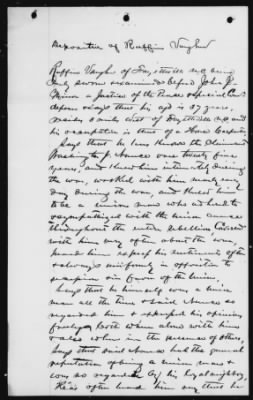 Deposition of Ruffin Vaughn
Ruffin Vaughn of Fayetteville N.C. being
duly sworn & examined before John J.
Minor a Justice of the Peace & Special Com
deposes & says that his age is 57 years,
resides 2 miles west of Fayetteville N.C. and
his occupation is that of a House Carpenter
Says that he has known the Claimant
Washington J. over twenty five
years, and knew him intimately during
the war, worked with him nearly every
day during the war, and knew him
to be a union man who adhered to
& sympathized with the union cause
throughout the entire rebellion Conversed
with him very often about the war,
heard him express his sentiments often
& always uniformly in opposition to
secession & in favor of the Union
Says that he himself was a union
man all the time & said
regarded him & expressed his opinions
freely both when alone with him
& also when in the presence of others,
Says that said had the general
reputation of being a union man &
was so regarded by his loyal neighbors,
He's often heard him say that he